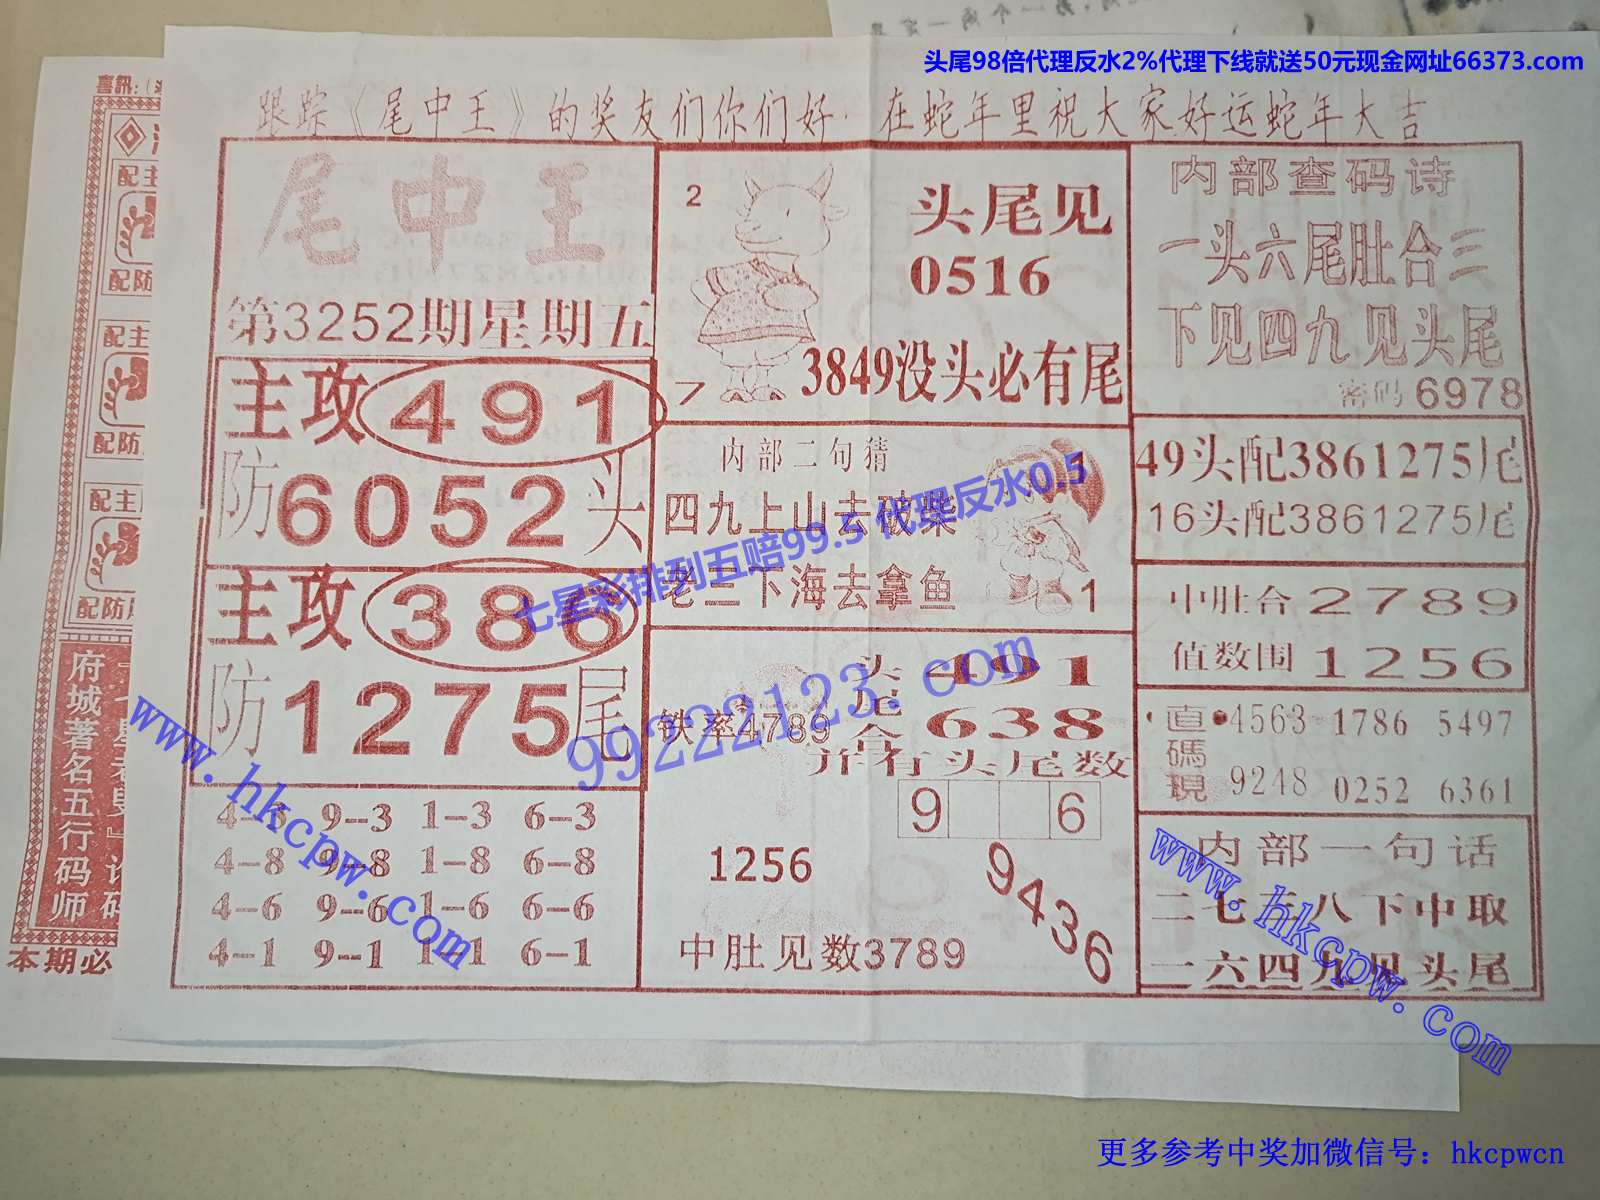 头尾98倍代理反水2%代理下线就送50元现金网址66373.com
跟踪《尾中王》的奖友们你们好·在蛇年里祝大家好运蛇年大吉
喜訊:
尾中王
第3252期星期五
主攻491
防6052头
主攻386
防1275尾
9--3 1--3 6--3
4--8 9--8 1--8 6--8
4--6 9--6 1--6 6--6
4--1 9--1 1--1 6--1
2
头尾见
0516
3849没头必有尾
7
内部二句猜
四九上山去破柴
老三下海去拿鱼
1
1
头尾合
491
638
铁率4789
并有头尾数
9 6
1256
9436
中肚见数3789
内部查码诗
一头六尾肚合三
下见四九见头尾
密码6978
49头配3861275尾
16头配3861275尾
中肚合2789
值数围1256
直碼現
4563 1786 5497
9248 0252 6361
内部一句话
二七五八下中取
一六四九见头尾
配主
配防
配主
配防
配主
配防
府城著名五行码师
本期必
七星彩排列五赔99.5 代理反水0.5
99222123.com
www.hkcpw.com
www.hkcpw.com
更多参考中奖加微信号：hkcpwcn